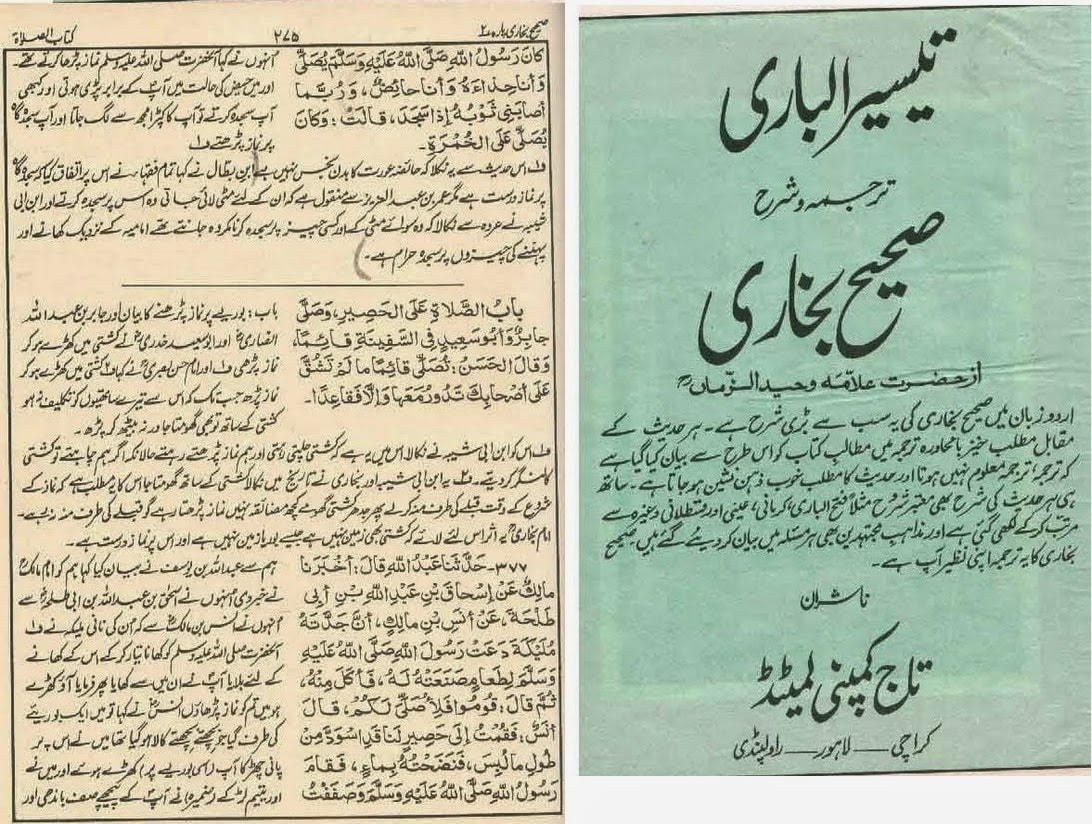 صحیح بخاری پارہ ۲
۲۷۵
کتاب الصلاة
كَانَ رَسُولُ اللهِ صَلَّى اللهُ عَلَيْهِ وَسَلَّمَ يُصَلِّي
وَأَنَا حِذَاءَهُ وَأَنَا حَائِضٌ، وَرُبَّمَا
أَصَابَنِي ثَوْبُهُ إِذَا سَجَدَ، قَالَتْ: وَكَانَ
يُصَلِّي عَلَى الْخُمْرَةِ۔
انہوں نے کہا آنحضرت صلی اللہ علیہ وسلم نماز پڑھا کرتے تھے۔
اور میں حیض کی حالت میں آپؐ کے برابر پڑی ہوتی اور کبھی
آپ سجدہ کرتے تو آپ کا کپڑا مجھ سے لگ جاتا اور آپ سجدہ گاہ
پر نماز پڑھتے ف۱
ف۱ اس حدیث سے یہ نکلا کہ حائضہ عورت کا بدن نجس نہیں ہے ابن بطال نے کہا تمام فقہاء نے اس پر اتفاق کیا کہ سجدہ گاہ
پر نماز درست ہے مگر عمر بن عبدالعزیز سے منقول ہے کہ ان کے لئے مٹی لائی جاتی وہ اس پر سجدہ کرتے اور ابن ابی
شیبہ نے عروہ سے نکالا کہ وہ سوائے مٹی کے اور کسی چیز پر سجدہ کرنا مکروہ جانتے تھے امامیہ کے نزدیک کھانے اور
پہننے کی چیزوں پر سجدہ حرام ہے۔
بَابُ الصَّلَاةِ عَلَى الْحَصِيرِ، وَصَلَّى
جَابِرٌ وَأَبُو سَعِيدٍ فِي السَّفِينَةِ قَائِمًا،
وَقَالَ الْحَسَنُ: تُصَلِّي قَائِمًا مَا لَمْ تَشُقَّ
عَلَى أَصْحَابِكَ تَدُورُ مَعَهَا وَإِلَّا فَقَاعِدًا۔
باب: بوریے پر نماز پڑھنے کا بیان اور جابر بن عبداللہ
انصاریؓ اور ابو سعید خدریؓ نے کشتی میں کھڑے ہو کر
نماز پڑھی ف۱ اور امام حسن بصریؒ نے کہا ف۲ کشتی میں کھڑے ہو کر
نماز پڑھ جب تک کہ اس سے تیرے ساتھیوں کو تکلیف نہ ہو
کشتی کے ساتھ تو بھی گھومتا جا ورنہ بیٹھ کر پڑھ۔
ف۱ اس کو ابن ابی شیبہ نے نکالا اس میں یہ ہے کہ کشتی چلتی رہتی اور ہم نماز پڑھتے رہتے حالانکہ اگر ہم چاہتے تو کشتی
کا لنگر کر دیتے۔ ف۲ یہ ابن ابی شیبہ اور بخاری نے تاریخ میں نکالا کشتی کے ساتھ گھومتا جا اس کا یہ مطلب ہے کہ نماز کے
شروع کے وقت قبلے کی طرف منہ کر لے پھر جدھر کشتی گھومے کچھ مضائقہ نہیں نماز پڑھتا رہے گو قبلے کی طرف منہ نہ رہے۔
امام بخاریؒ یہ اثر اس لئے لائے کہ کشتی بھی زمین نہیں ہے جیسے بوریا زمین نہیں ہے اور اس پر نماز درست ہے۔
۳۷۷- حَدَّثَنَا عَبْدُ اللهِ قَالَ: أَخْبَرَنَا
مَالِكٌ عَنْ إِسْحَاقَ بْنِ عَبْدِ اللهِ بْنِ أَبِي
طَلْحَةَ، عَنْ أَنَسِ بْنِ مَالِكٍ، أَنَّ جَدَّتَهُ
مُلَيْكَةَ دَعَتْ رَسُولَ اللهِ صَلَّى اللهُ عَلَيْهِ
وَسَلَّمَ لِطَعَامٍ صَنَعَتْهُ لَهُ، فَأَكَلَ مِنْهُ،
ثُمَّ قَالَ: قُومُوا فَلِأُصَلِّيَ لَكُمْ، قَالَ
أَنَسٌ: فَقُمْتُ إِلَى حَصِيرٍ لَنَا قَدِ اسْوَدَّ مِنْ
طُولِ مَا لُبِسَ، فَنَضَحْتُهُ بِمَاءٍ، فَقَامَ
رَسُولُ اللهِ صَلَّى اللهُ عَلَيْهِ وَسَلَّمَ وَصَفَفْتُ
ہم سے عبداللہ بن یوسف نے بیان کیا کہا ہم کو امام مالکؒ
نے خبر دی انہوں نے اسحٰق بن عبداللہ بن ابی طلحہ سے
انہوں نے انس بن مالکؓ سے کہ ان کی نانی ملیکہ نے ف۱
آنحضرت صلی اللہ علیہ وسلم کو کھانا تیار کر کے اس کے کھانے
کے لئے بلایا آپؐ نے ان میں سے کھایا پھر فرمایا آؤ کھڑے
ہو میں تم کو نماز پڑھاؤں انسؓ نے کہا تو میں ایک بوریے
کی طرف گیا جو بچھتے بچھتے کالا ہو گیا تھا میں نے اس پر
پانی چھڑکا آپؐ (اسی بوریے پر) کھڑے ہوئے اور میں نے
اور یتیم لڑکے (ضمیرہ) نے آپؐ کے پیچھے صف باندھی اور
تیسیر الباری
ترجمہ و شرح
صحیح بخاری
از حضرت علامہ وحید الزماںؒ
اردو زبان میں صحیح بخاری کی یہ سب سے بڑی شرح ہے۔ ہر حدیث کے
مقابل مطلب خیز بامحاورہ ترجمہ میں مطالب کتاب کو اس طرح سے بیان کیا گیا ہے
کہ ترجمہ، ترجمہ معلوم نہیں ہوتا اور حدیث کا مطلب خوب ذہن نشین ہو جاتا ہے۔ ساتھ
ہی ہر حدیث کی شرح بھی معتبر شروح مثلاً فتح الباری، کرمانی، عینی اور قسطلانی وغیرہ سے
مرتب کر کے لکھی گئی ہے اور مذاہب مجتہدین بھی ہر مسئلہ میں بیان کر دیئے گئے ہیں صحیح
بخاری کا یہ ترجمہ اپنی نظیر آپ ہے۔
ناشران
تاج کمپنی لمیٹڈ
کراچی — لاہور — راولپنڈی